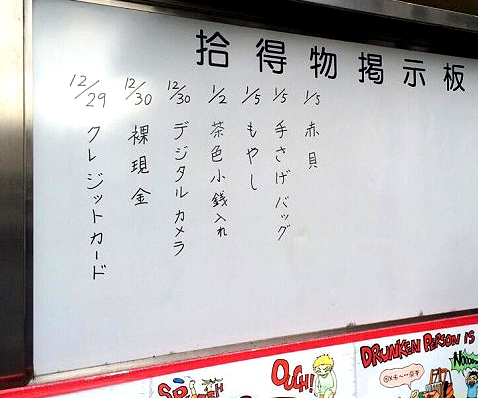 拾得物掲示板
1/5 赤貝
1/5 手さげバッグ
1/5 もやし
1/2 茶色小銭入れ
12/30 デジタルカメラ
12/30 裸現金
12/29 クレジットカード
OUCH!
DRUNKEN PERSON IS